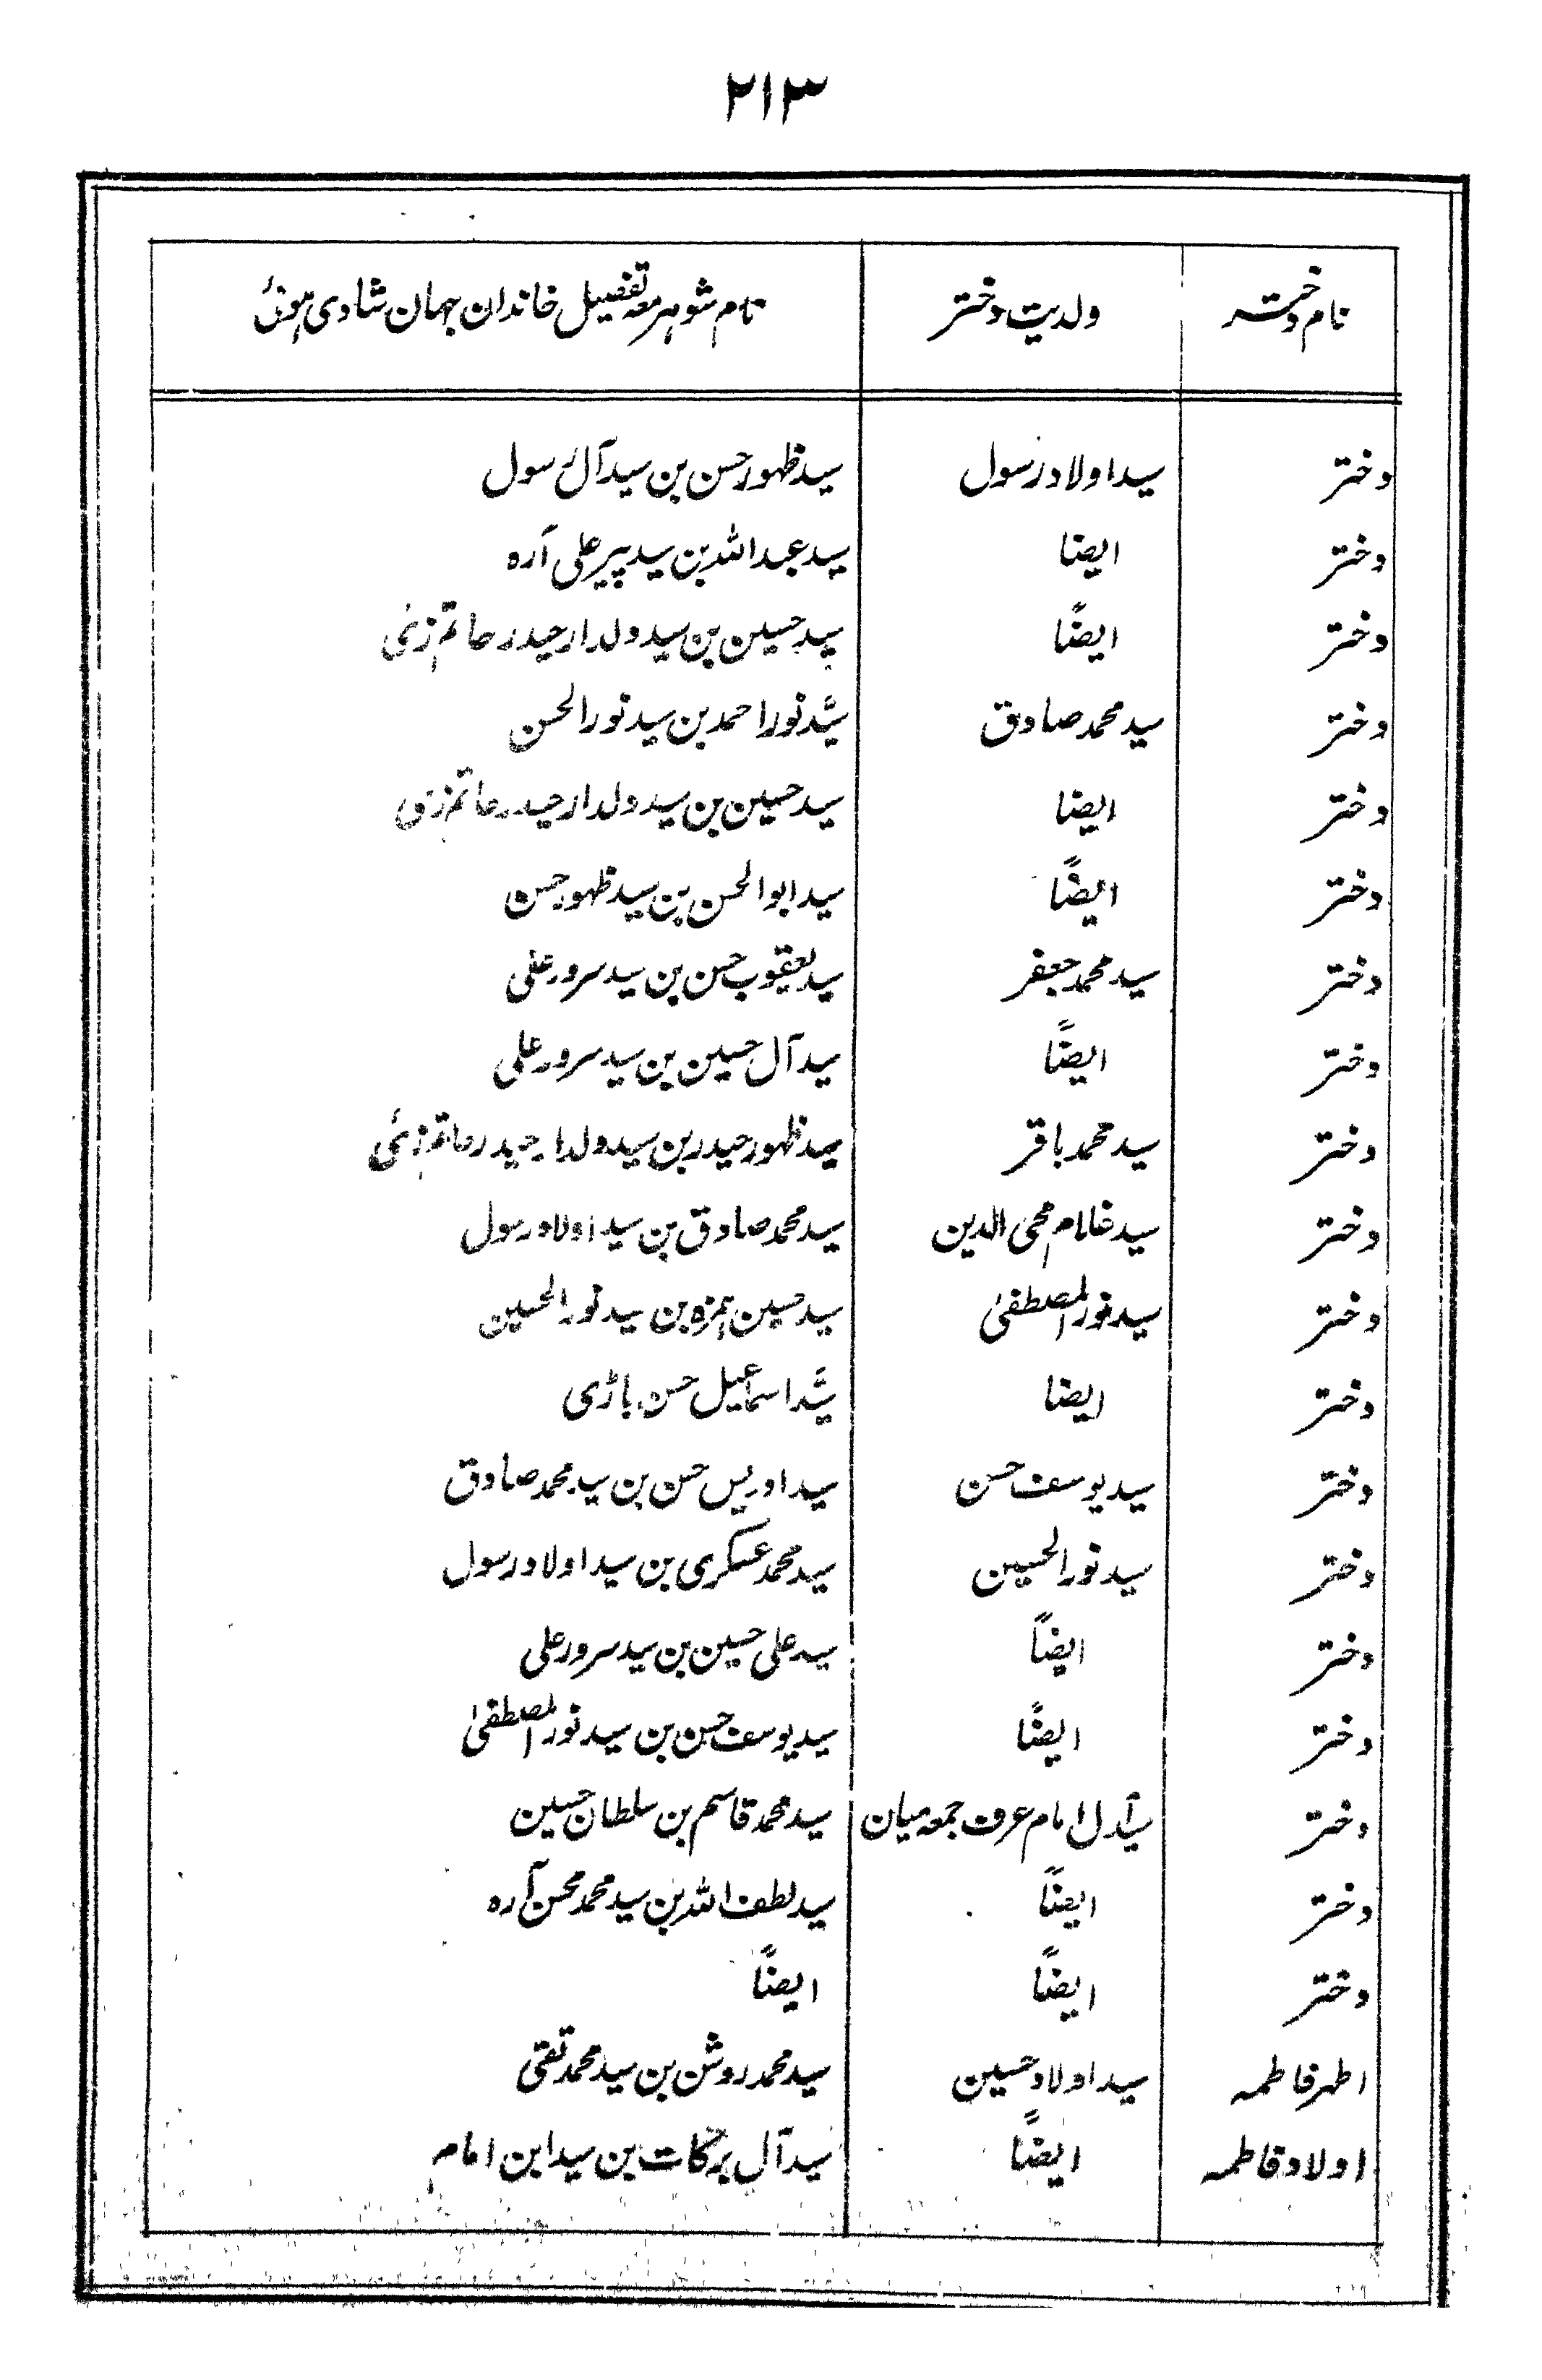 ۲۱۳
نام دختر ولدیت دختر نام شوہر معہ تفصیل خاندان جہان شادی ہوئی
دختر سید اولاد رسول سید ظہور حسن بن سید آل رسول
دختر ایضا سید عبداللہ بن سید پیر علی آرہ
دختر ایضاً سید حسین بن سید دلدار حیدر حاتم زئی
دختر سید محمد صادق سید نور احمد بن سید نور الحسن
دختر ایضا سید حسین بن سید دلدار حیدر حاتم زئی
دختر ایضاً سید ابو الحسن بن سید ظہور حسن
دختر سید محمد جعفر سید یعقوب حسن بن سید سرور علی
دختر ایضاً سید آل حسین بن سید سرور علی
دختر سید محمد باقر سید ظہور حیدر بن سید دلدار حیدر حاتم زئی
دختر سید غلام محی الدین سید محمد صادق بن سید اولاد رسول
دختر سید نور المصطفیٰ سید حسین حمزہ بن سید نور الحسین
دختر ایضا سید اسماعیل حسن باڑی
دختر سید یوسف حسن سید ادریس حسن بن سید محمد صادق
دختر سید نور الحسین سید محمد عسکری بن سید اولاد رسول
دختر ایضاً سید علی حسین بن سید سرور علی
دختر ایضاً سید یوسف حسن بن سید نور المصطفیٰ
دختر سید آل امام عرف جمعہ میان سید محمد قاسم بن سلطان حسین
دختر ایضاً سید لطف اللہ بن سید محمد محسن آرہ
دختر ایضاً ایضاً
اطہر فاطمہ سید اولاد حسین سید محمد روشن بن سید محمد تقی
اولاد فاطمہ ایضاً سید آل برکات بن سید ابن امام